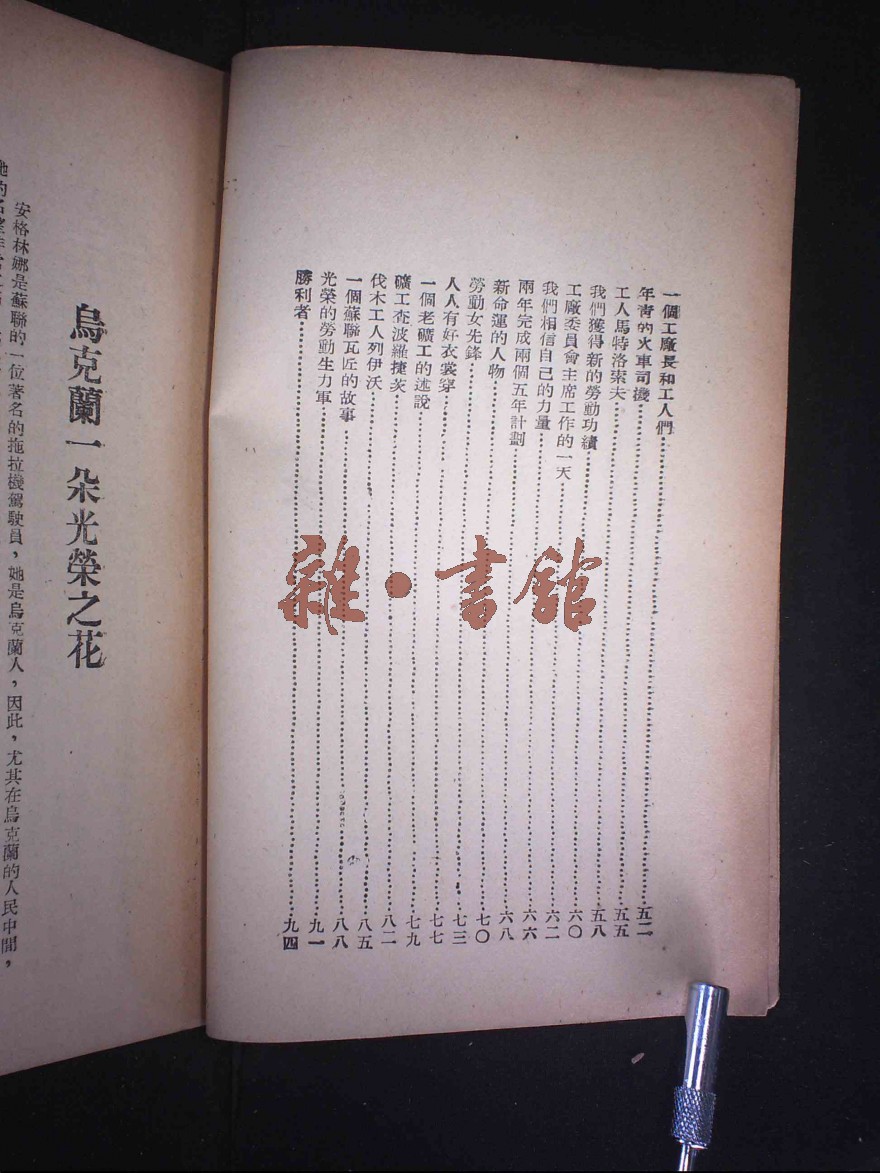 一個工廠長和工人們……五二
年青的火車司機……五五
工人馬特洛索夫……五八
我們獲得新的勞動功績……六〇
工廠委員會主席工作的一天……六二
我們相信自己的力量……六六
兩年完成兩個五年計劃……六八
新命運的人物……七〇
勞動女先鋒……七三
人人有好衣裳穿……七七
一個老礦工的述說……七九
礦工查波羅捷茨……八二
伐木工人列伊沃……八五
一個蘇聯瓦匠的故事……八八
光榮的勞動生力軍……九一
勝利者……九四
雜·書館
烏克蘭一朵光榮之花
安格林娜是蘇聯的一位著名的拖拉機駕駛員，她是烏克蘭人，因此，尤其在烏克蘭的人民中間，